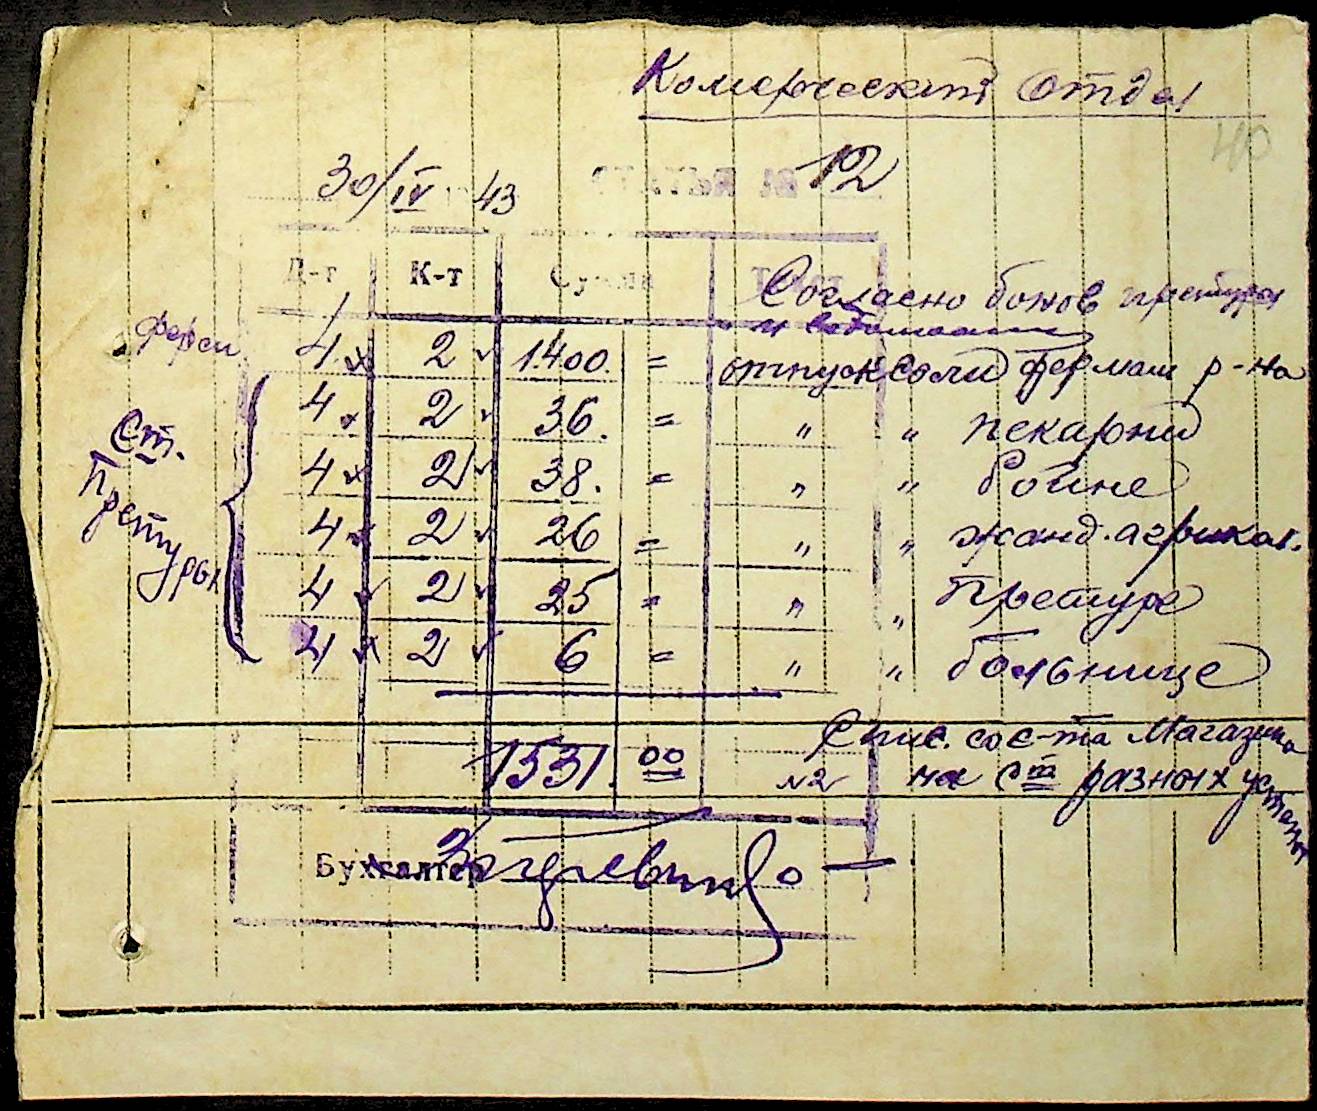 Комерческий Отдел
40
30/IV 43 СТАТЬЯ № 12
Д-т К-т Сумма Текст
Согласно бонов претуры
и ведомости
ферм 4 2 1400. = отпуск соли фермам р-на
4 2 36. = " " пекарни
Ст. 4 2 38. = " " бойне
Претуры 4 2 26 = " " жанд.
4 2 25 = " " Претуре
4 2 6 = " " больнице
1531. 00 Спис. со с-та Магазина
№2 на ст разных
Бухгалтер